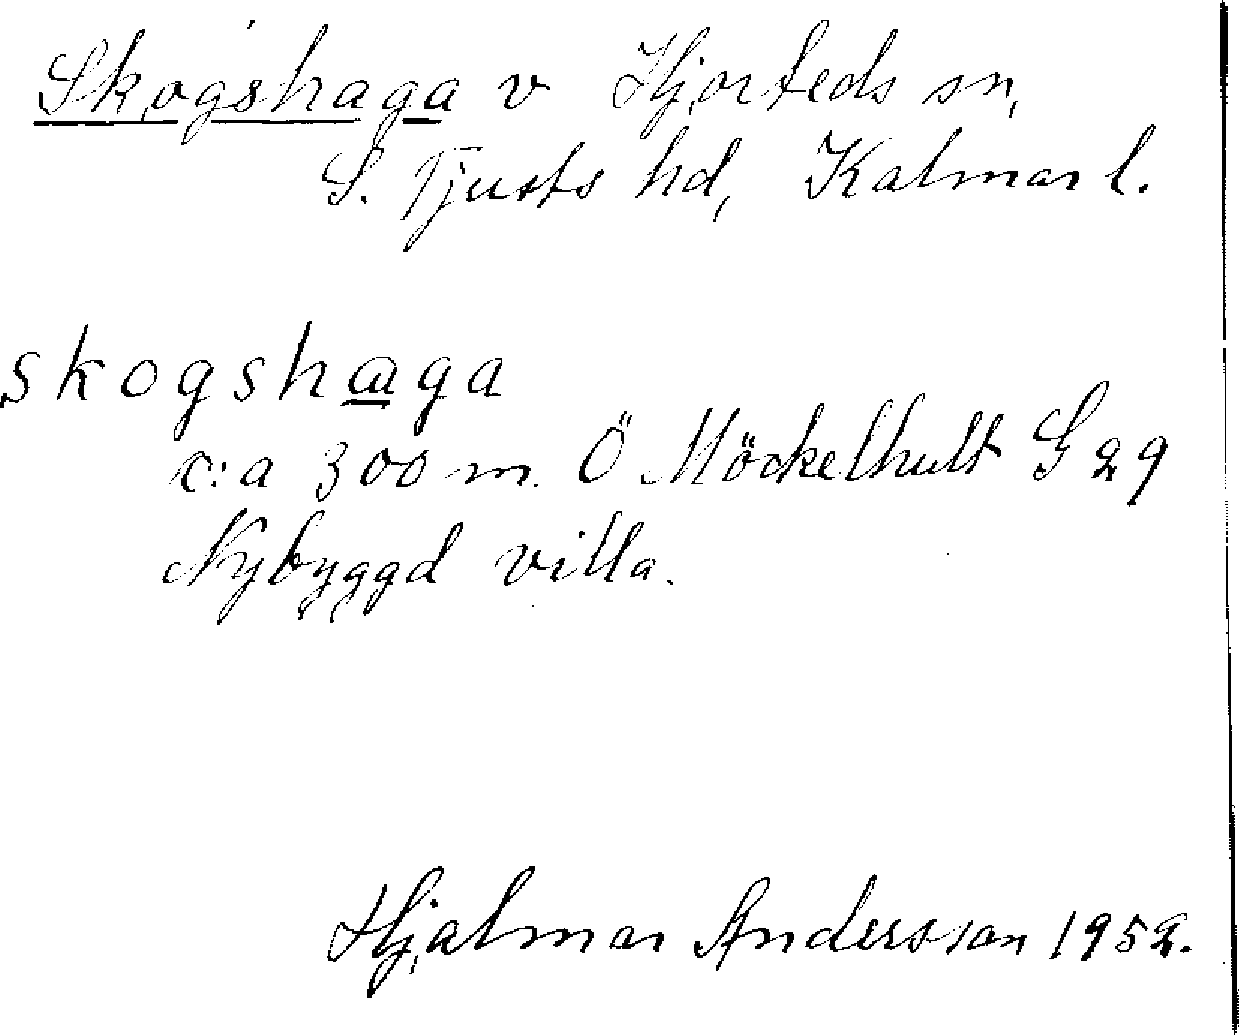 Skogshaga v Hjorteds sn,
S. Tjusts hd, Kalmar l.
skogshaga
c:a 300 m. Ö Möckelhult G 29
Nybyggd villa.
Hjalmar Andersson 1952.